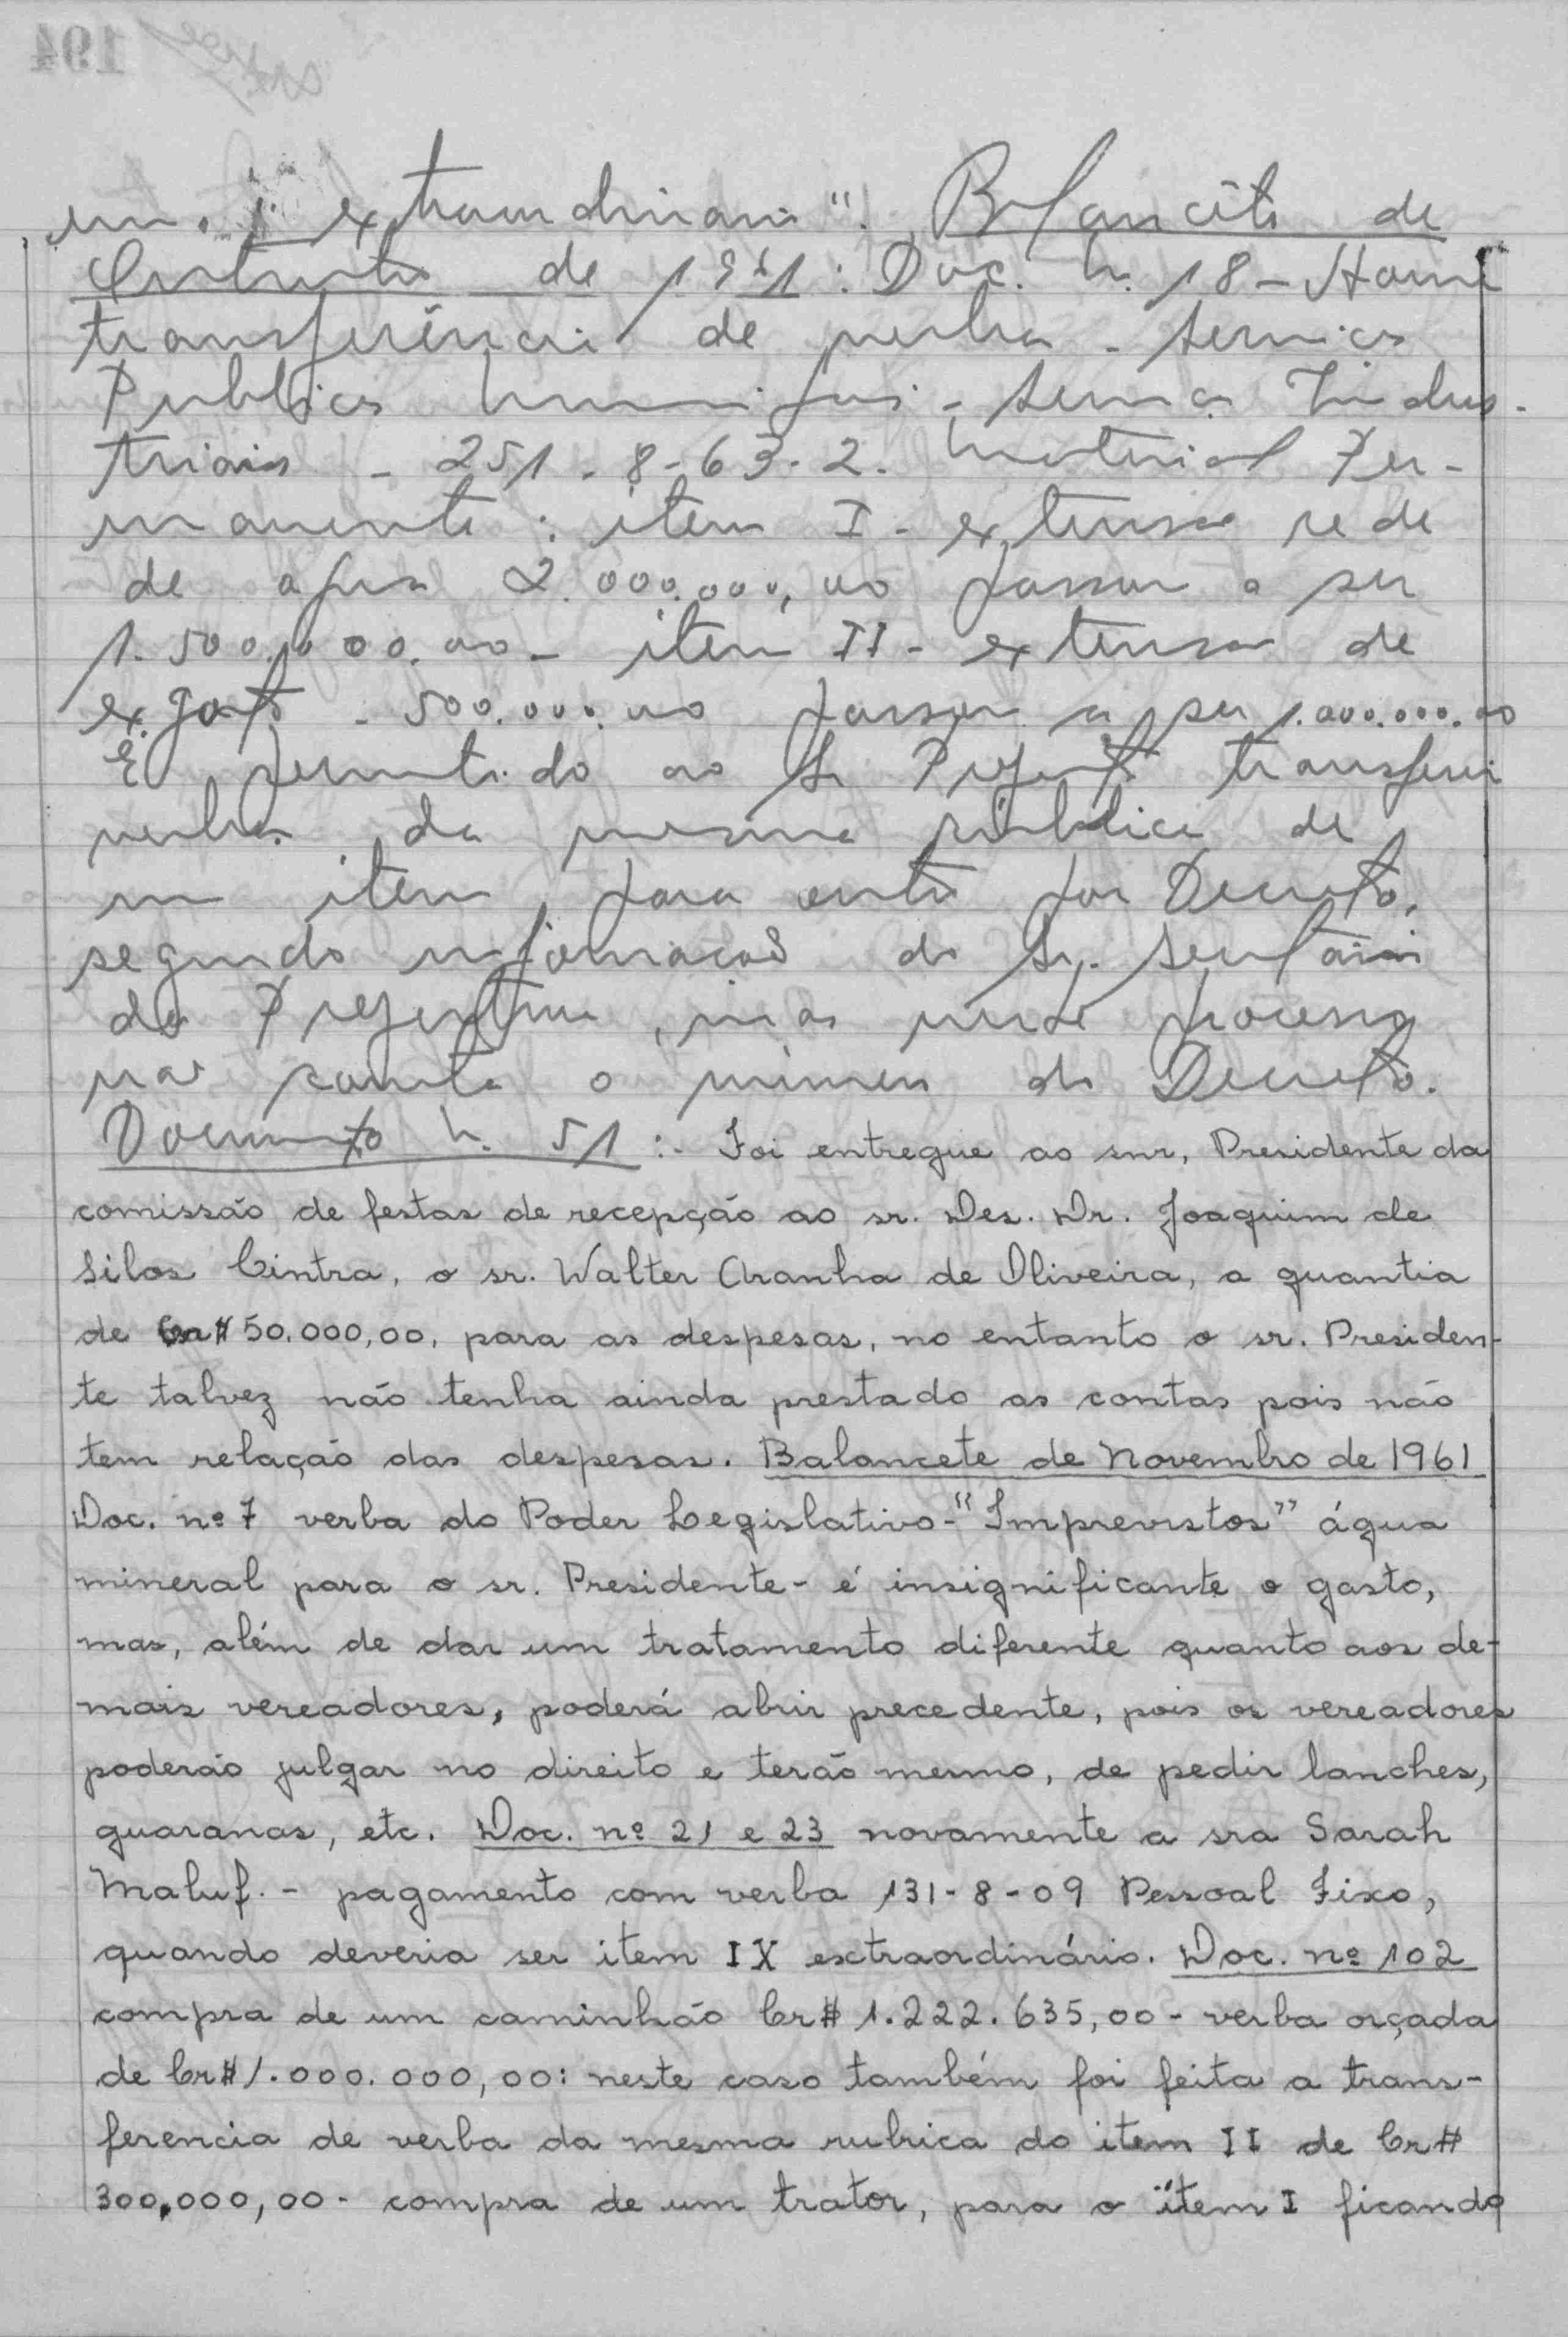 extraordinario". Balancête de
Outubro de 1961: Doc. n. 18 - Houve
transferência de verba - Serviços
Publicos Municipais - Serviços Indus-
triais - 251-8-63-2. Material Per-
manente: item I - extensão rede
de agua 2.000.000,00 passou a ser
1.500.000.00 - item II - extensão de
exgoto - 500.000.00 passou a ser 1.000.000.00
É permitido ao Sr. Prefeito transferir
verba da mesma rúbrica de
um item para outro por Decreto,
segundo informações do Sr. Secretário
da Prefeitura, mas neste processo
não consta o número do Decreto.
Documento n. 51:- Foi entregue ao snr. Presidente da
comissão de festas de recepção ao sr. Des. Dr. Joaquim de
Silos Cintra, o sr. Walter Aranha de Oliveira, a quantia
de Cr$ 50.000,00, para as despesas, no entanto o sr. Presiden-
te talvez não tenha ainda prestado as contas pois não
tem relação das despesas. Balancete de Novembro de 1961
Doc. nº 7 verba do Poder Legislativo-"Imprevistos" água
mineral para o sr. Presidente- é insignificante o gasto,
mas, além de dar um tratamento diferente quanto aos de-
mais vereadores, poderá abrir precedente, pois os vereadores
poderão julgar no direito e terão mesmo, de pedir lanches,
guaranas, etc. Doc. nº 21 e 23 novamente a sra Sarah
Maluf. - pagamento com verba 131-8-09 Pessoal Fixo,
quando deveria ser item IX extraordinário. Doc. nº 102
compra de um caminhão Cr$ 1.222.635,00 - verba orçada
de Cr$ 1.000.000,00: neste caso também foi feita a trans-
ferencia de verba da mesma rubrica do item II de Cr$
300.000,00 - compra de um trator, para o item I ficando